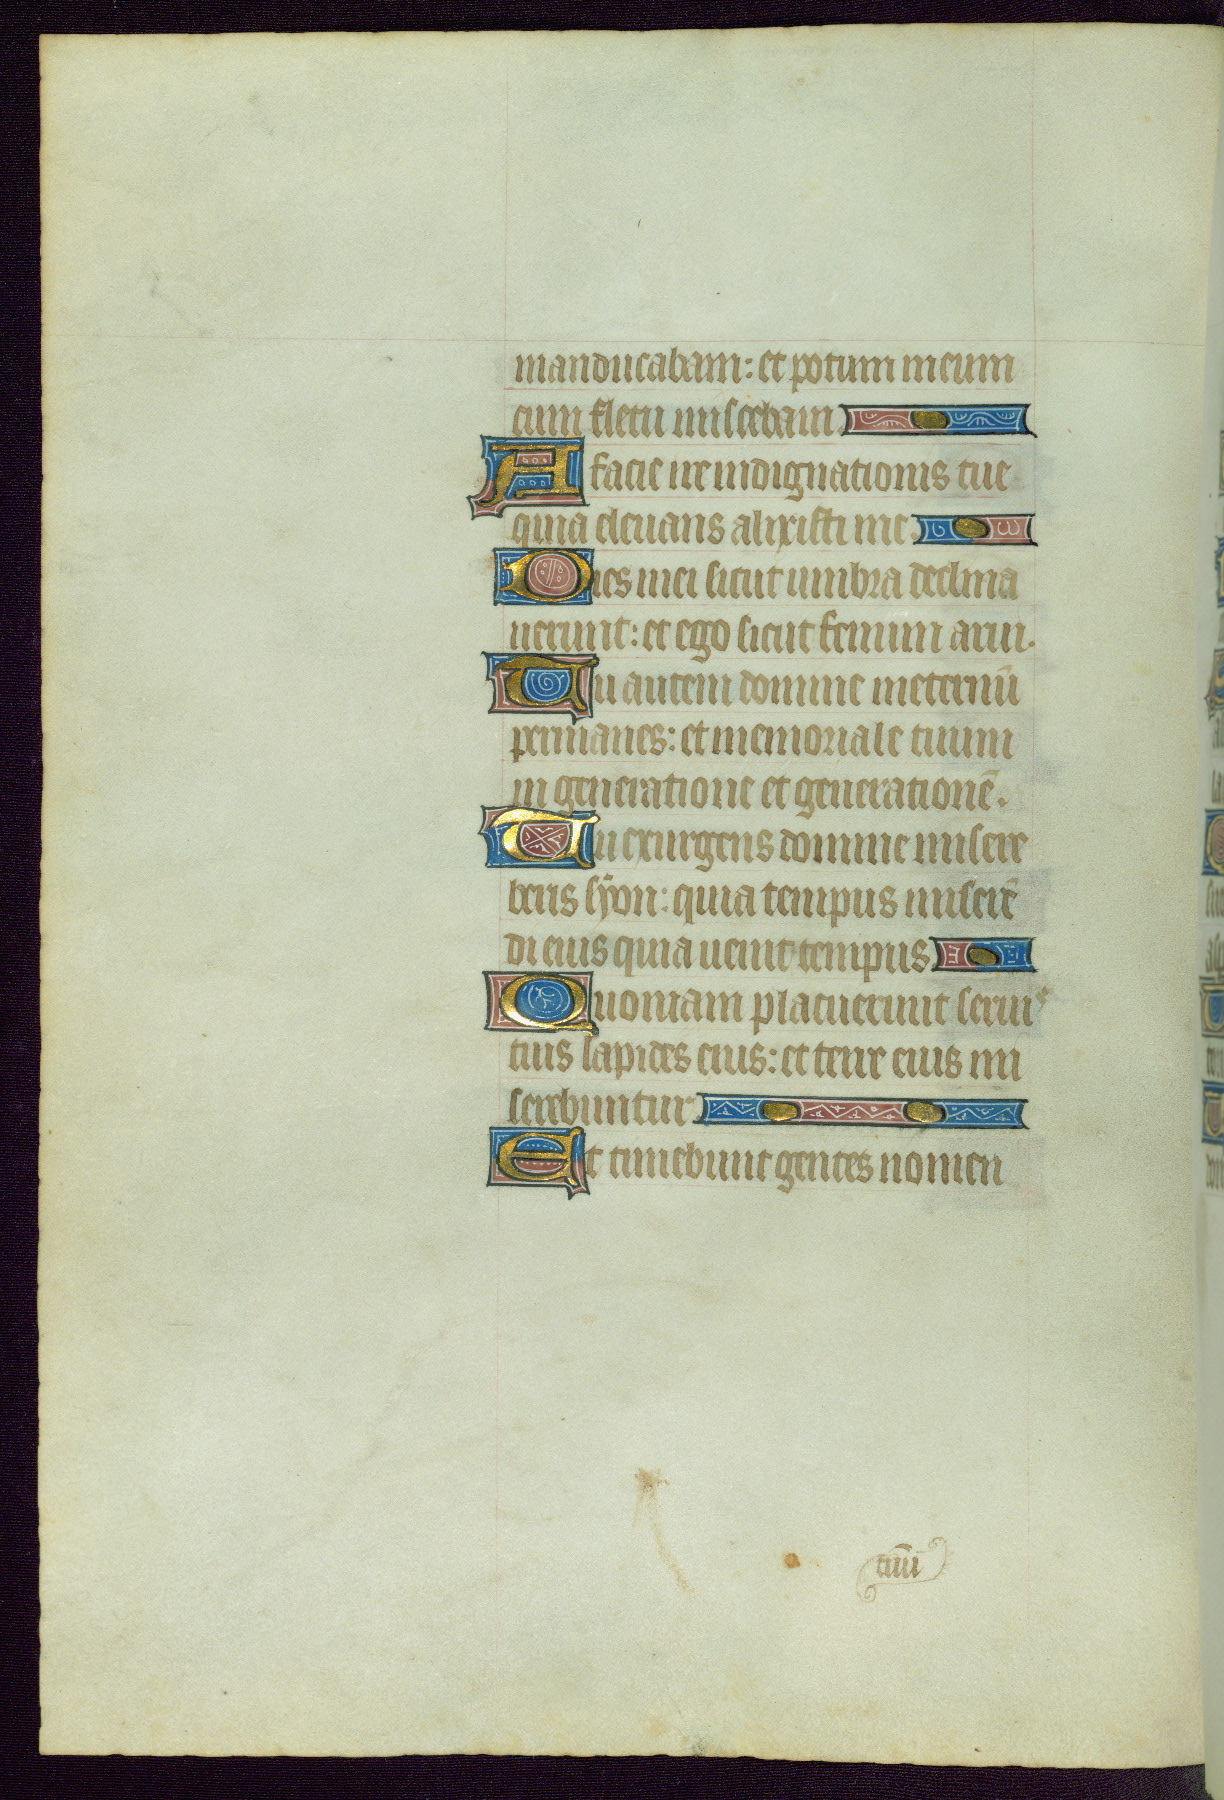 manducabam: et potum meum
cum fletu miscebam
A facie ire indignationis tue
quia elevans alixisti me
Dies mei sicut umbra declina
verunt: et ego sicut fenum arui.
Tu autem domine ineternū
permanes: et memoriale tuum
in generatione et generationē.
Tu exurgens domine misere
beris syon: quia tempus miserē
di eius quia venit tempus
Quoniam placuerunt servis
tuis lapides eius: et terre eius mi
serebuntur
Et timebunt gentes nomen
tuū